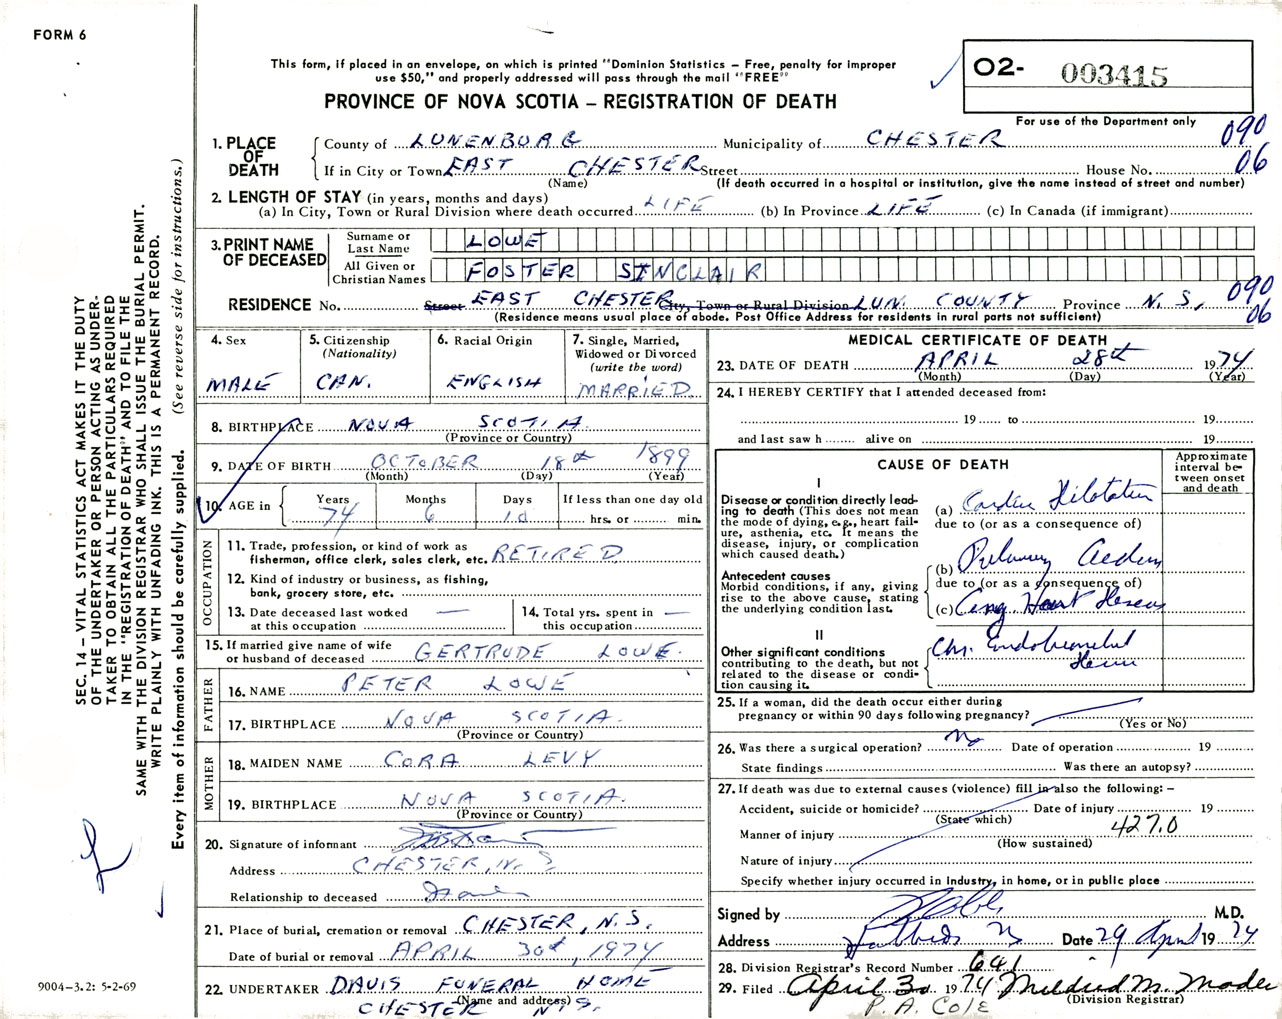 FORM 6
This form, if placed in an envelope, on which is printed "Dominion Statistics – Free, penalty for improper
use $50," and properly addressed will pass through the mail "FREE"
PROVINCE OF NOVA SCOTIA – REGISTRATION OF DEATH
02- 003415
For use of the Department only
SEC. 14 – VITAL STATISTICS ACT MAKES IT THE DUTY
OF THE UNDERTAKER OR PERSON ACTING AS UNDER-
TAKER TO OBTAIN ALL THE PARTICULARS REQUIRED
IN THE "REGISTRATION OF DEATH" AND TO FILE THE
SAME WITH THE DIVISION REGISTRAR WHO SHALL ISSUE THE BURIAL PERMIT.
WRITE PLAINLY WITH UNFADING INK. THIS IS A PERMANENT RECORD.
Every item of information should be carefully supplied. (See reverse side for instructions.)
1. PLACE OF DEATH
County of LUNENBURG Municipality of CHESTER 090
If in City or Town EAST CHESTER Street House No. 06
(Name) (If death occurred in a hospital or institution, give the name instead of street and number)
2. LENGTH OF STAY (in years, months and days)
(a) In City, Town or Rural Division where death occurred LIFE (b) In Province LIFE (c) In Canada (if immigrant)
3. PRINT NAME OF DECEASED
Surname or Last Name LOWE
All Given or Christian Names FOSTER SINCLAIR
RESIDENCE No. Street EAST CHESTER City, Town or Rural Division LUN. COUNTY Province N. S. 090
(Residence means usual place of abode. Post Office Address for residents in rural parts not sufficient) 06
4. Sex MALE
5. Citizenship (Nationality) CAN.
6. Racial Origin ENGLISH
7. Single, Married, Widowed or Divorced (write the word) MARRIED
8. BIRTHPLACE NOVA SCOTIA
(Province or Country)
9. DATE OF BIRTH OCTOBER 18th 1899
(Month) (Day) (Year)
10. AGE in Years Months Days If less than one day old
74 6 10 hrs. or min.
OCCUPATION
11. Trade, profession, or kind of work as
fisherman, office clerk, sales clerk, etc. RETIRED
12. Kind of industry or business, as fishing,
bank, grocery store, etc.
13. Date deceased last worked
at this occupation —
14. Total yrs. spent in
this occupation —
15. If married give name of wife
or husband of deceased GERTRUDE LOWE.
FATHER
16. NAME PETER LOWE
17. BIRTHPLACE NOVA SCOTIA.
(Province or Country)
MOTHER
18. MAIDEN NAME CORA LEVY
19. BIRTHPLACE NOVA SCOTIA.
(Province or Country)
20. Signature of informant
Address CHESTER, N. S
Relationship to deceased
21. Place of burial, cremation or removal CHESTER, N.S.
Date of burial or removal APRIL 30th, 1974
22. UNDERTAKER DAVIS FUNERAL HOME
(Name and address)
CHESTER N.S.
9004-3.2: 5-2-69
MEDICAL CERTIFICATE OF DEATH
23. DATE OF DEATH APRIL 28th 1974
(Month) (Day) (Year)
24. I HEREBY CERTIFY that I attended deceased from:
19 to 19
and last saw h alive on 19
CAUSE OF DEATH
Approximate interval be-tween onset and death
I
Disease or condition directly lead-
ing to death (This does not mean
the mode of dying, e.g., heart fail-
ure, asthenia, etc. It means the
disease, injury, or complication
which caused death.)
(a) Cardiac Dilatation
due to (or as a consequence of)
Antecedent causes
Morbid conditions, if any, giving
rise to the above cause, stating
the underlying condition last.
(b) Pulmonary Aedema
due to (or as a consequence of)
(c) Cong Heart Disease
II
Other significant conditions
contributing to the death, but not
related to the disease or condi-
tion causing it.
Chr.
25. If a woman, did the death occur either during
pregnancy or within 90 days following pregnancy?
(Yes or No)
26. Was there a surgical operation? No Date of operation 19
State findings Was there an autopsy?
27. If death was due to external causes (violence) fill in also the following: –
Accident, suicide or homicide? Date of injury 19
(State which)
427.0
Manner of injury
(How sustained)
Nature of injury
Specify whether injury occurred in Industry, in home, or in public place
Signed by M.D.
Address Date 29 April 1974
28. Division Registrar's Record Number 641
29. Filed April 30 1974 Mildred M. Mader
(Division Registrar)
P. A. Cole